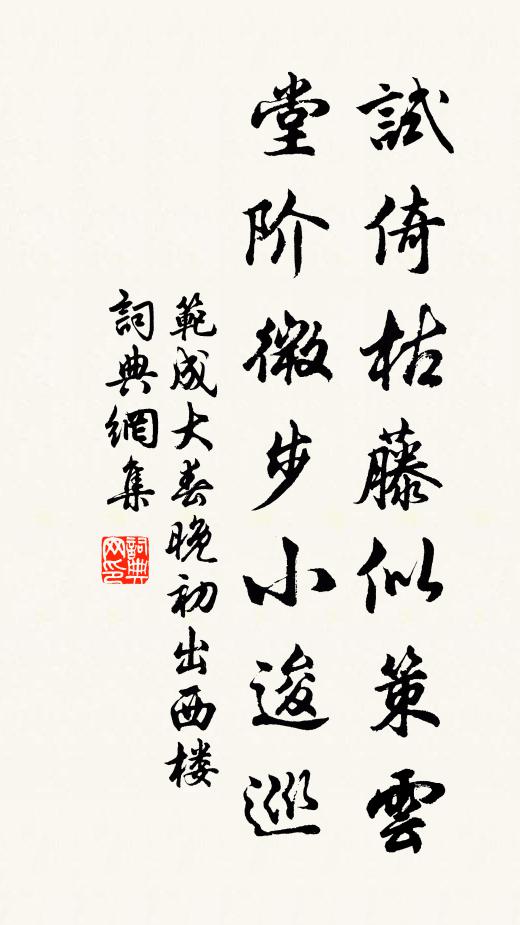 試倚枯藤似策雲
堂阶微步小逡巡
範成大春晚初出西楼
詞典網集
詞典网印